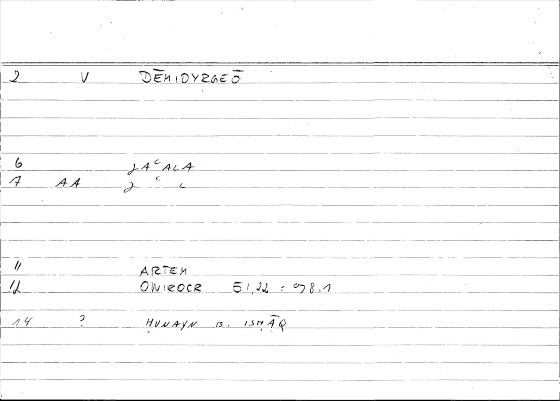 2 V DĒMIOYRGEŌ
6 ǦAʿALA
7 AA ǧ ʿ L
11 ARTEM
12 ONIROCR 51,22 : 98.1
14 ? ḤUNAYN B. ISḤĀQ